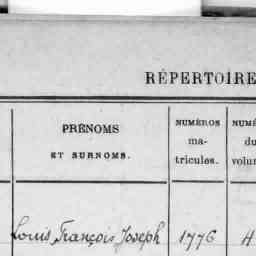 RÉPERTOIRE
PRÉNOMS
ET SURNOMS.
NUMÉROS
ma-
tricules.
NUMÉ
du
volum
Louis François Joseph 1776 4